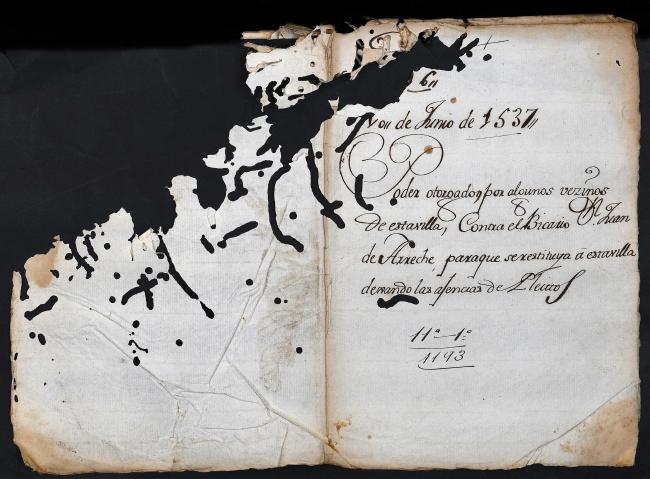 6,,
de Junio de 1537,,
Poder otorgador por algunos vezinos
de esta villa, Contra el Bicario Dn Juan
de Arreche para que se restituya â esta villa
las asencias de Pleitos
11ª–1º
1193